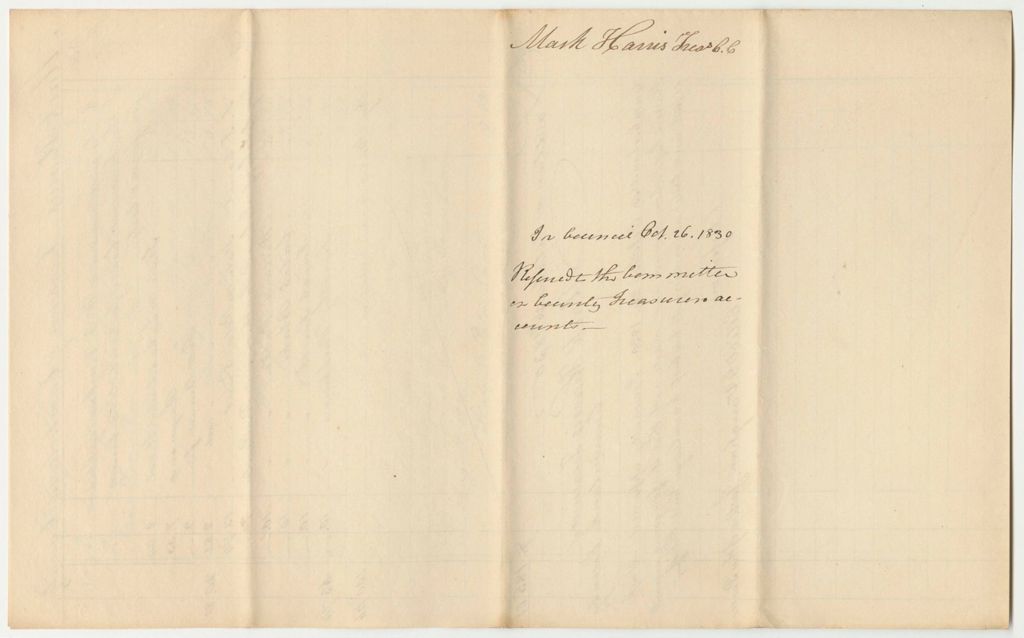 Mark Harris Treas C.C
In Council Oct. 26. 1830
Refered to the Committee
on County Treasurers ac-
counts.—